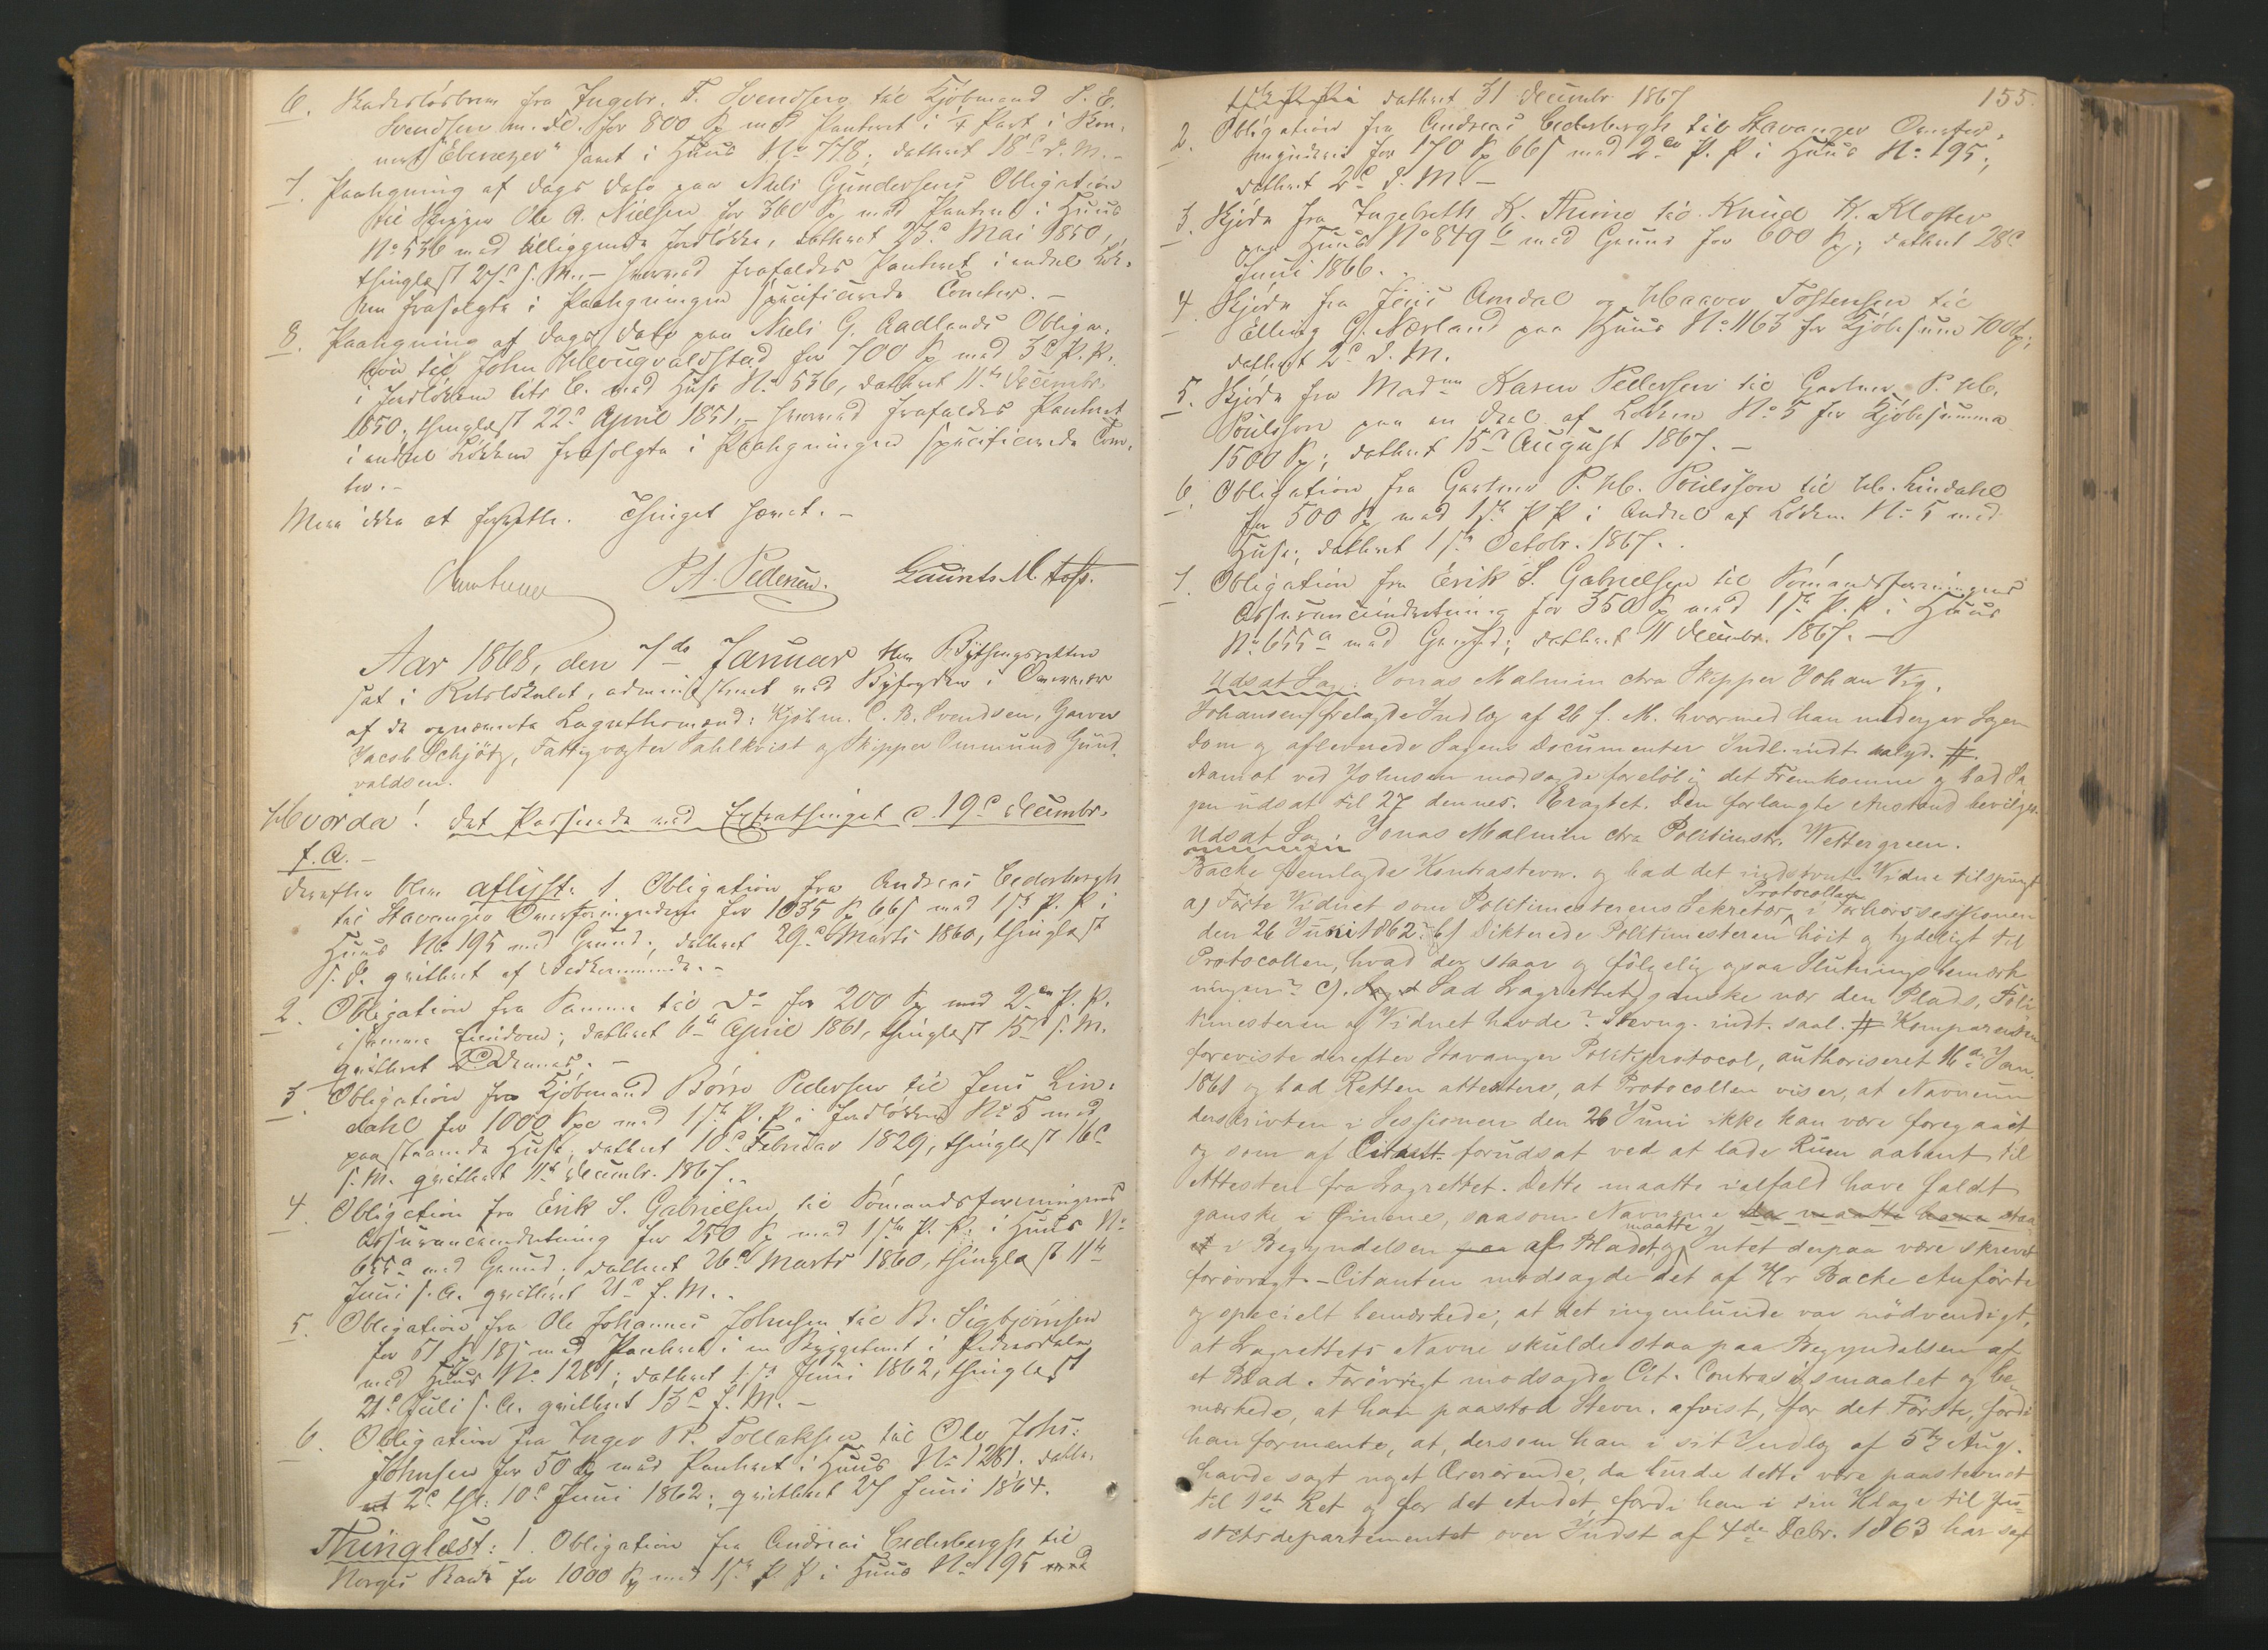 6. Skadesløsbrev fra Ingebr. T. Svendsen til Kjøbmand S. E.
Svendsen m. Fl. for 800 Sp med Panteret i 1/4 Part i Skon-
nert "Ebenezer" samt i Huus No 778; dateret 18d d. M. -
7. Paategning af Dags Dato paa Niels Gundersens Obligation
til Skipper Ole A. Nielsen for 360 Sp med Panteret i Huus
No 536 med tilliggende Jordløkke, dateret 23d Mai 1850,
thinglæst 27d s. M. - hvorved frafaldes Panteret i endel Løk-
ken frasolgte i Paategningen specificerede Tomter. -
8. Paategning af Dags Dato paa Niels G. Aadlands Obliga-
tion til John Haugvaldstad for 700 Sp med 3d P. P.
i Jordløkken litr C. med Huse No 536, dateret 11te Decembr
1850, thinglæst 22d April 1851, - hvorved frafaldes Panteret
i endel Løkken frasolgte i Paategningen specificerede Tom-
ter. -
Mere ikke at forrette. Thinget hævet. -
P. A. Pedersen. Gaurits M. Toss.
Aar 1868, den 7de Januar blev Bythingsretten
sat i Retslokalet, administreret ved Byfogden i Overvær
af de opnævnte Lagrettemænd: Kjøbm. C. B. Svendsen, Garver
Jacob Schjøtz, Fattigvogter Sahlkvist og Skipper Ommund Gund-
valdsen.
Hvorda! det Passerede ved Extrathinget d. 19d Decembr.
f. A. -
Derefter blev aflyst: 1 Obligation fra Andreas Cederbergh
til Stavanger Overformynderi for 1035 Sp 66s med 1ste P. P. i
Huus No 195 med Grund; dateret 29d Marts 1860, thinglæst
s. D. qvitteret af Vedkommende. -
2. Obligation fra Samme til Do for 200 Sp med 2den P. P.
i samme Eiendom; dateret 6te April 1861, thinglæst 15d s. M.
qvitteret 2d Dennes. -
3. Obligation fra Kjøbmand Børre Pedersen til Jens Lin-
dahl for 1000 Spd med 1ste P. P. i Jordløkken No 5 med
paastaaende Huse, dateret 10d Februar 1829, thinglæst 16d
s. M. qvitteret 11te Decembr. 1867. -
4. Obligation fra Erik S. Gabrielsen til Sømandsforeningens
Assuranceindretning for 250 Sp med 1ste P. P. i Huus No
655a med Grund; dateret 26d Marts 1860, thinglæst 11te
Juni s. A. qvitteret 21d f. M. -
5. Obligation fra Ole Johannes Johnsen til B. Sigbjørnsen
for 51 Sp 18s med Panteret i en Byggetomt i Pedersdalen
med Huus No 1261; dateret 1ste Juni 1862, thinglæst
21d Juli s. A. qvitteret 13d f. M. -
6. Obligation fra Inger P. Tollaksen til Ole Johs:
Johnsen for 50 Sp med Panteret i Huus No 1261. date-
ret 2d thl: 10d Juni 1862; qvitteret 27 Juni 1864.
Thinglæst: 1. Obligation fra Andreas Cederbergh til
Norges Bank for 1000 Sp med 1ste P. P. i Huus No 195 med
155.
dateret 31 Decembr 1867
2. Obligation fra Andreas Cederbergh til Stavanger Overfor-
mynderi for 170 Sp 66s med 2den P. P. i Huus No 195;
dateret 2d d. M. -
3. Skjøde fra Ingebreth K. Thime til Knud K. Kloster
paa Huus No 849b med Grund for 600 Sp; dateret 28d
Juni 1866. -
4. Skjøde fra Jens Omdal og Haaver Tostensen til
Elling G. Nærland paa Huus No 1163 for Kjøbesum 700 Sp;
dateret 2d d. M.
5. Skjøde fra Madme Karen Pedersen til Gartner P. H.
Poulsson paa en Deel af Løkken No 5 for Kjøbesumma
1500 Sp; dateret 15d August 1867. -
6. Obligation fra Gartner P. H. Poulsson til H. Lindahl
for 500 Sp med 1ste P. P. i Andeel af Løkken No 5 med
Huse; dateret 1ste Octobr. 1867. -
7. Obligation fra Erik S. Gabrielsen til Sømandsforeningens
Assuranceindretning for 350 Sp med 1ste P. P. i Huus
No 655a med Grund; dateret 11 Decembr. 1867. -
Udsat Sag: Jonas Malmin ctra Skipper Johan Vig.
Johansen fremlagde Indlæg af 26 f. M. hvormed han nedergav Sagen
Dom og afleverede Sagens Documenter Indl. indt. saalyd. #.
Aamot ved Johnsen modsagde foreløbig det Fremkomne og bad Sa
gen udsat til 27 dennes. Eragtet. Den forlangte Anstand bevilges.
Udsat Sag: Jonas Malmin ctra Politimstr. Wettergreen.
Backe fremlagde Kontrastevn. og bad det indstevnte Vidne tilspurgt
a) Førte Vidnet som Politimesterens Sekretær Protocollen i Forhørssessionen
den 26 Juni 1862? b) Dikterede Politimesteren høit og tydeligt til
Protocollen, hvad der staar og følgelig ogsaa Slutningsbemærk
ninger? c). Sad Lagrettet ganske nær den Plads, Poli
timesteren og Vidnet havde? Stevng. indt. saal. # Komparenten
foreviste derefter Stavanger Politiprotocol, authoriseret 16de Jan.
1861 og bad Retten attestere, at Protocollen viser, at Navneun
derskrivten i Sessionen den 26 Juni ikke kan være foregaaet
og som af Citant. forudsat ved at lade Rum aabent til
Attesten fra Lagrettet. Dette maatte ialfald have faldt
ganske i Øinene, saasom Navnene da maatte have staa
et i Begyndelsen paa af Bladet og maatte Intet derpaa være skrevet
forøvrigt. - Citanten modsagde det af Hr Backe Anførte
og specielt bemærkede, at det ingenlunde var nødvendigt,
at Lagrettets Navne skulde staa paa Begyndelsen af
et Blad. Forøvrigt modsagde Cit. Contrasøgsmaalet og be
mærkede, at han paastod Stevn. afvist, for det Første, fordi
han formente, at, dersom han i sit Indlæg af 5te Aug.
havde sagt noget Ærerørende, da burde dette være paastevnet
til 1ste Ret og for det Andet, fordi han i sin Klage til Ju-
stitsdepartementet over Indst af 4de Debr. 1863 har sagt